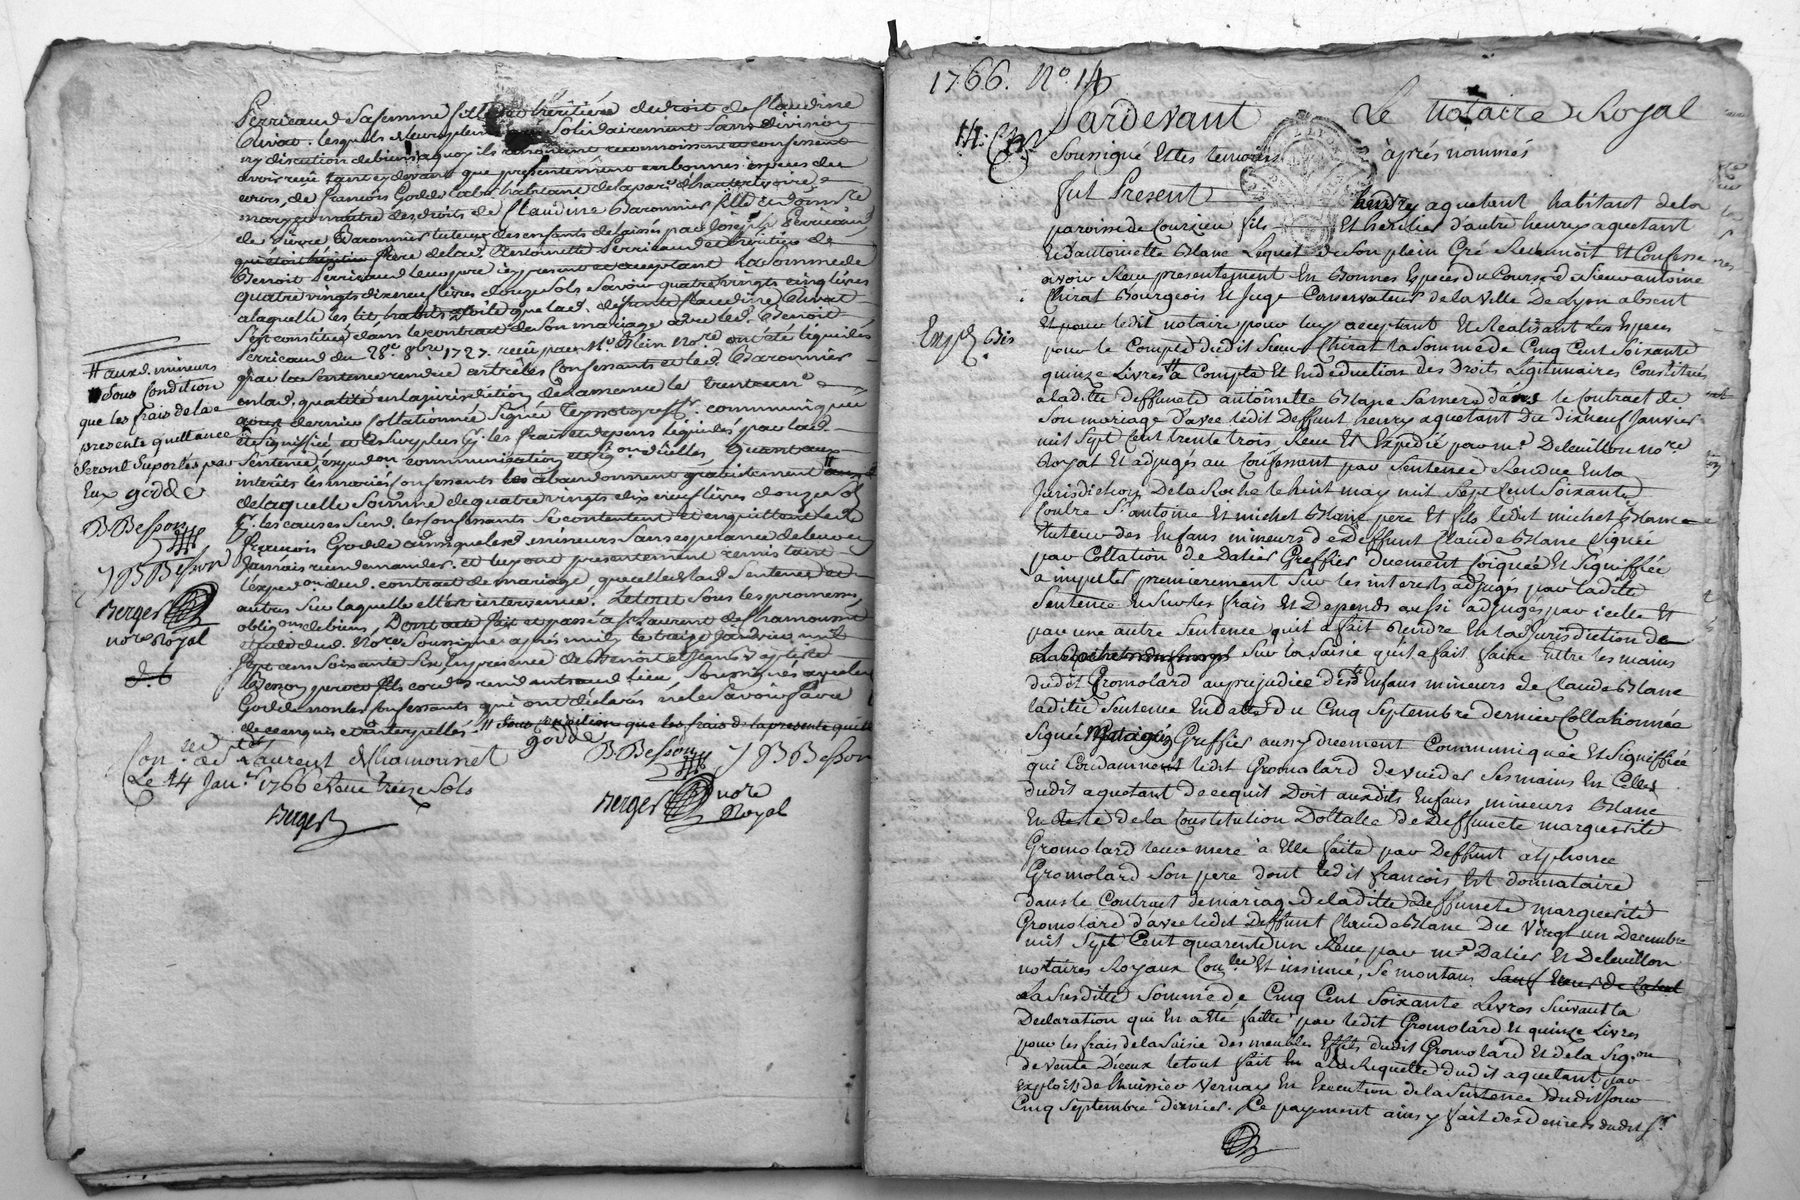 Perricaud sa femme fille et heritiere de droit de Claudine
Chirat. lesquels de leur plein gré solidairement sans division
ny discution de biens a quoy ils renoncent reconnoissent et confessent
avoir reçu tant cy devant que presentement en bonnes especes de
cours, de François Godde lab. habitant de la par. d'hauterivoire
mary et maitre des droits de Claudine Baronnier fille et donre
de Pierre Baronnier tuteur des enfants delaissés par Joseph Perricaud
qui etoit frere de lad. Perricaud et heritier de
Benoit Perricaud leur pere icy present et acceptant la somme de
quatre vingts dixneuf livres douze sols savoir quatre vingts cinq livres
a laquelle les lit habits et toile que lad. defunte Claudine Chirat
s'est constitué dans le contract de son mariage avec led. Benoit
Perricaud du 28e. 8bre. 1727. reçu par Me. Klein no.re ont été liquidés
par la sentence rendue entre les confessants et led. Baronnier
en lad. qualité en la jurisdiction de la menue le trente un e
aoust dernier collationnée signée Teyssot greff. communiquée
et signifiée et le surplus pr. les frais et depens liquidés par lad.
sentence, expedon communication et sig.on d'icelles, quant aux
interets les mariés confessants les abandonnent gratuitement
de laquelle somme de quatre vingts dix neuf livres douze sols
pr. les causes susd. les confessants se contentent et en quittent led.
françois Godde ainsi que lesd. mineurs sans esperance de leur en
jamais rien demander. et luy ont presentement remis tant
l'exped.on dud. contract de mariage que celles de lad. sentence et
autres sur laquelle elle est intervenue. Le tout sous les promesses,
oblig.ons de biens, Dont acte fait et passé a St. Laurent de Chamousset
etude dud. No.re soussigné apres midy le treize Janvier mil
sept cens soixante six en presence de Benoit et Jean Baptiste
Besson pere et fils cordonniers demeurants aud. lieu, soussignés avec led.
Godde non les confessants qui ont declarés ne le savoir faire
de ce enquis et interpellés. # sous condition que les frais de la presente quitt
godde B Besson J B Besson
Berger nore
Royal
Con.lé de St Laurent de Chamousset
Le 14 Janr. 1766 et reçu treize sols
Berger
# auxd. mineurs
Sous condition
que les frais de la
presente quittance
seront suportés par
eux godde
B Besson
J B Besson
Berger
nore Royal
1766. No. 14
Pardevant Le Notaire Royal
Soussigné Et les temoins après nommés
fut Present henry aquetant habitant de la
paroisse de Courzieu fils Et heritier d'autre henry aquetant
Et d'antoinette Blanc Lequel de son plein Gré Reconnoit Et Confesse
avoir Reçu presentement En Bonnes Especes du Cours, de Sieur antoine
Chirat Bourgeois Et Juge Conservateur de la Ville De Lyon absent
Et pour ledit notaire pour luy acceptant Et Realisant les Especes
pour le Compte dudit Sieur Chirat la Somme de Cinq Cent Soixante
quinze Livres a Compte Et En deduction des Droits Legitimaires Constitués
a laditte deffuncte antoinette Blanc Sa mere dans le Contract de
Son mariage d'avec ledit Deffunt henry aquetant du dixneuf Janvier
mil Sept Cent trente trois Reçu Et Expedié par me. Deleuillon no.re
Royal Et adjugés au Confessant par Sentence Rendue En la
Jurisdiction De la Roche le huit may mil Sept Cent Soixante
Contre Sr. antoine Et michel Blanc pere Et fils ledit michel Blanc
tuteur des Enfans mineurs de Deffunt Claude Blanc Signée
par Collation de Dalier Greffier duement Coiquée Et Signiffiée
a imputer premierement Sur les interests adjugés par laditte
Sentence Ensuitte frais Et Depends aussi adjugés par icelle Et
par une autre Sentence qu'il a fait Rendre En lad. Jurisdiction de
Sur la Saisie qu'il a fait faire Entre les mains
dudit Gromolard au prejudice desd. Enfans mineurs de Claude Blanc
laditte Sentence En datte du Cinq Septembre dernier Collationnée
Signée Greffier aussy duement Communiquée Et Signiffiée
qui Condamnent ledit Gromolard de vuider Ses mains En Celles
dudit aquetant de ce quil Doit auxdits Enfans mineurs Blanc
En Reste de la Constitution Dottalle de Deffuncte marguerite
Gromolard leur mere a Elle faite par Deffunt alphonce
Gromolard Son pere dont ledit francois Est donnataire
dans le Contract de mariage de laditte Deffuncte marguerite
Gromolard d'avec ledit Deffunt Claude Blanc Du Vingt un Decembre
mil Sept Cent quarente un Reçu par me. Dalier Et Deleuillon
notaires Royaux Con.lée Et insinué, Se montans Sauf Erreur de Calcul
la Susditte Somme de Cinq Cent Soixante Livres Suivant la
Declaration qui En a Eté faitte par ledit Gromolard Et quinze Livres
pour les frais de la Saisie des meubles Effets dudit Gromolard Et de la Sig.on
de vente D'iceux le tout fait En a la Requette dudit aquetant par
Exploits de l'huissier Vernay En Execution de la Sentence dudit jour
Cinq Septembre dernier. Ce payement ainsy fait des Deniers dudit Sr.